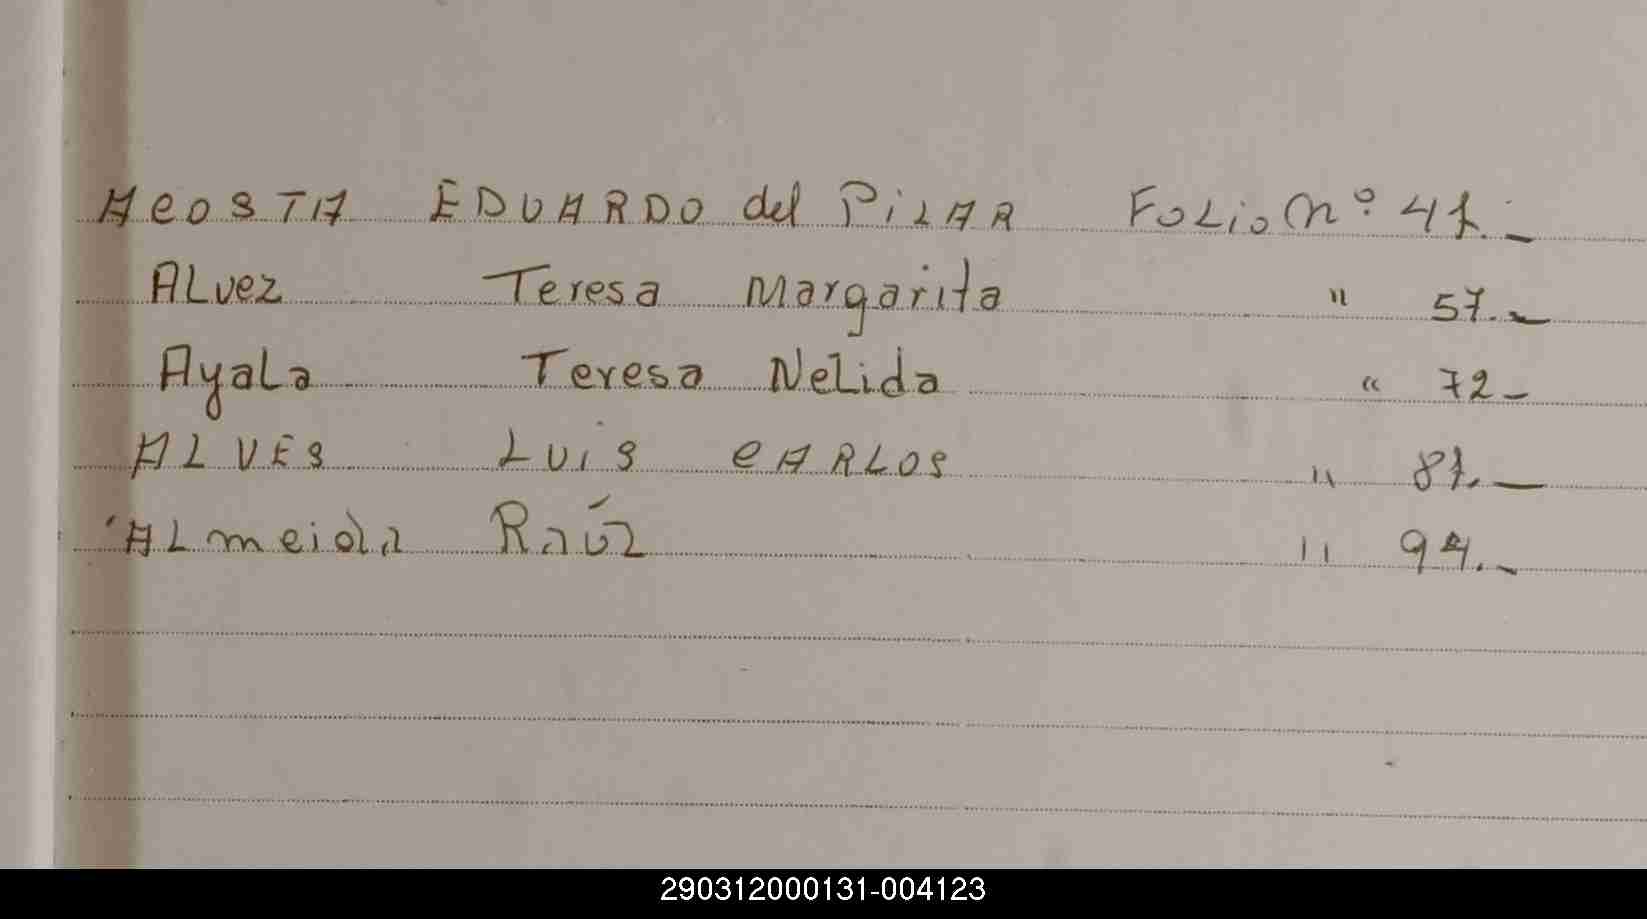 ACOSTA EDUARDO del PILAR Folio Nº 41._
ALvez Teresa Margarita " 57._
AyaLa Teresa NeLida " 72_
ALVES LUIS CARLOS " 81._
ALmeida Raúl " 94._
290312000131-004123